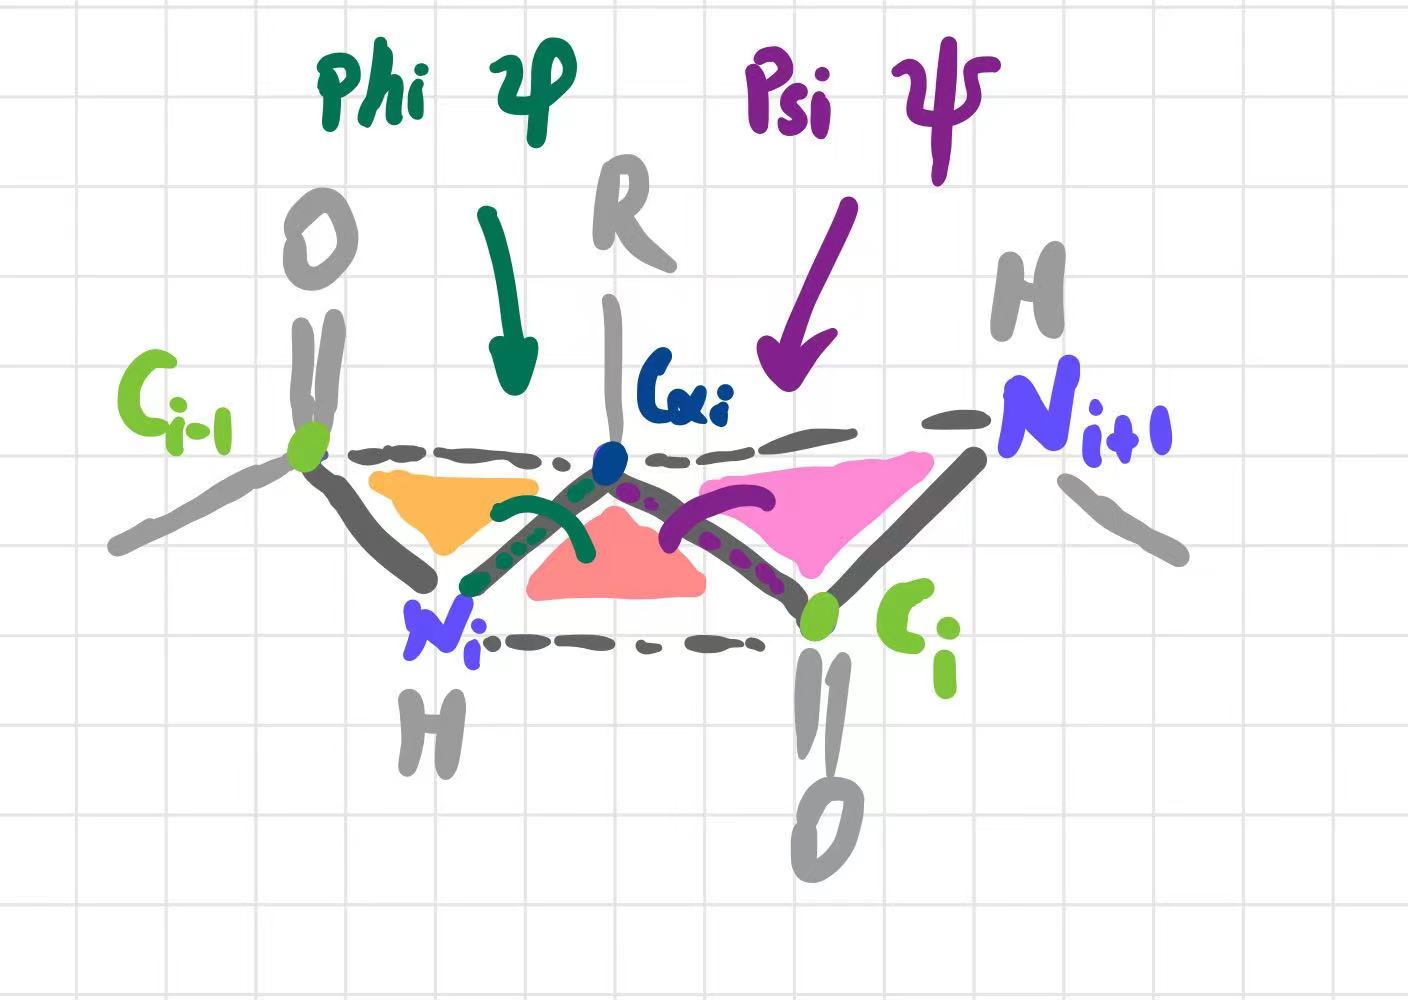 Phi φ Psi ψ
O R H
C i-1 Cα i N i+1
N i C i
H
O